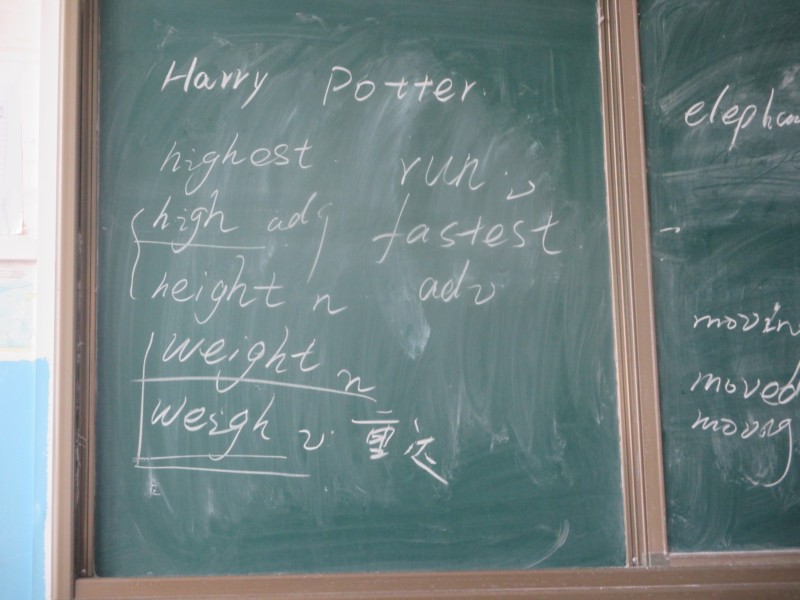 Harry Potter.
highest run. v
high adj fastest.
height n adv
weight n
weigh v. 重达
elephan
movin
moved
moving